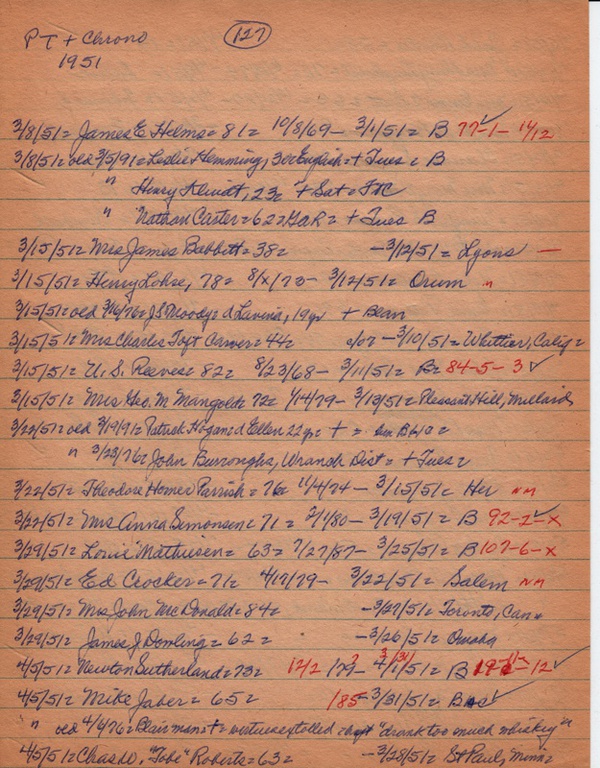 PT + Chrono 127
1951
3/8/51= James E Helms= 81= 10/8/69- 3/1/51= B 77-1- 14/12
3/8/51= old 3/5/91= Leslie Hemming, 30= English=+ Tues = B
" Henry 23= + Sat=
" Nathan Carter=62=GAR= + Tues B
3/15/51= Mrs James Babbett= 38= -3/12/51= Lyons —
3/15/51= Henry Lohse, 78= 8/x/73- 3/12/51= Orum "
3/15/51= old 3/16/76= JS Moody= d Lavina, 19yr + Bean
3/15/51= Mrs Charles Toft Carver= 44= -3/10/51= Whittier, Calif=
3/15/51= U. S. Reeves= 82= 8/23/68- 3/11/51= B= 84-5-3 ✓
3/15/51= Mrs Geo. M Mangold= 72= 4/4/79- 3/13/51= Pleasant Hill, Millard
3/22/51= old 3/19/91= Patrick Hogan= d Ellen 22yr= + =
" 3/23/76= John Burroughs, Dist= + Tues=
3/22/51= Theodore Homer Parrish= 76= 11/4/74- 3/15/51= Her NM
3/22/51= Mrs Anna Simonsen= 71= 2/1/80- 3/19/51= B 92-2-x
3/29/51= Louie Mathiesen= 63= 7/27/87- 3/25/51= B 107-6-x
3/29/51= Ed Crocker= 71= 4/17/79- 3/22/51= Salem NM
3/29/51= Mrs John McDonald= 84= -3/27/51= Toronto, Can=
3/29/51= James J Dowling= 62= -3/26/51= Omaha
4/5/51= Newton Sutherland= 73= 12/2/79- 4/1/51= B 12 ✓
4/5/51= Mike Jaber= 65= /85- 3/31/51= B
" old 4/4/76= Blair man= + virtues extolled "drank too much whiskey"
4/5/51= Chas W. "Tobe" Roberts= 63= -3/28/51= St Paul, Minn=